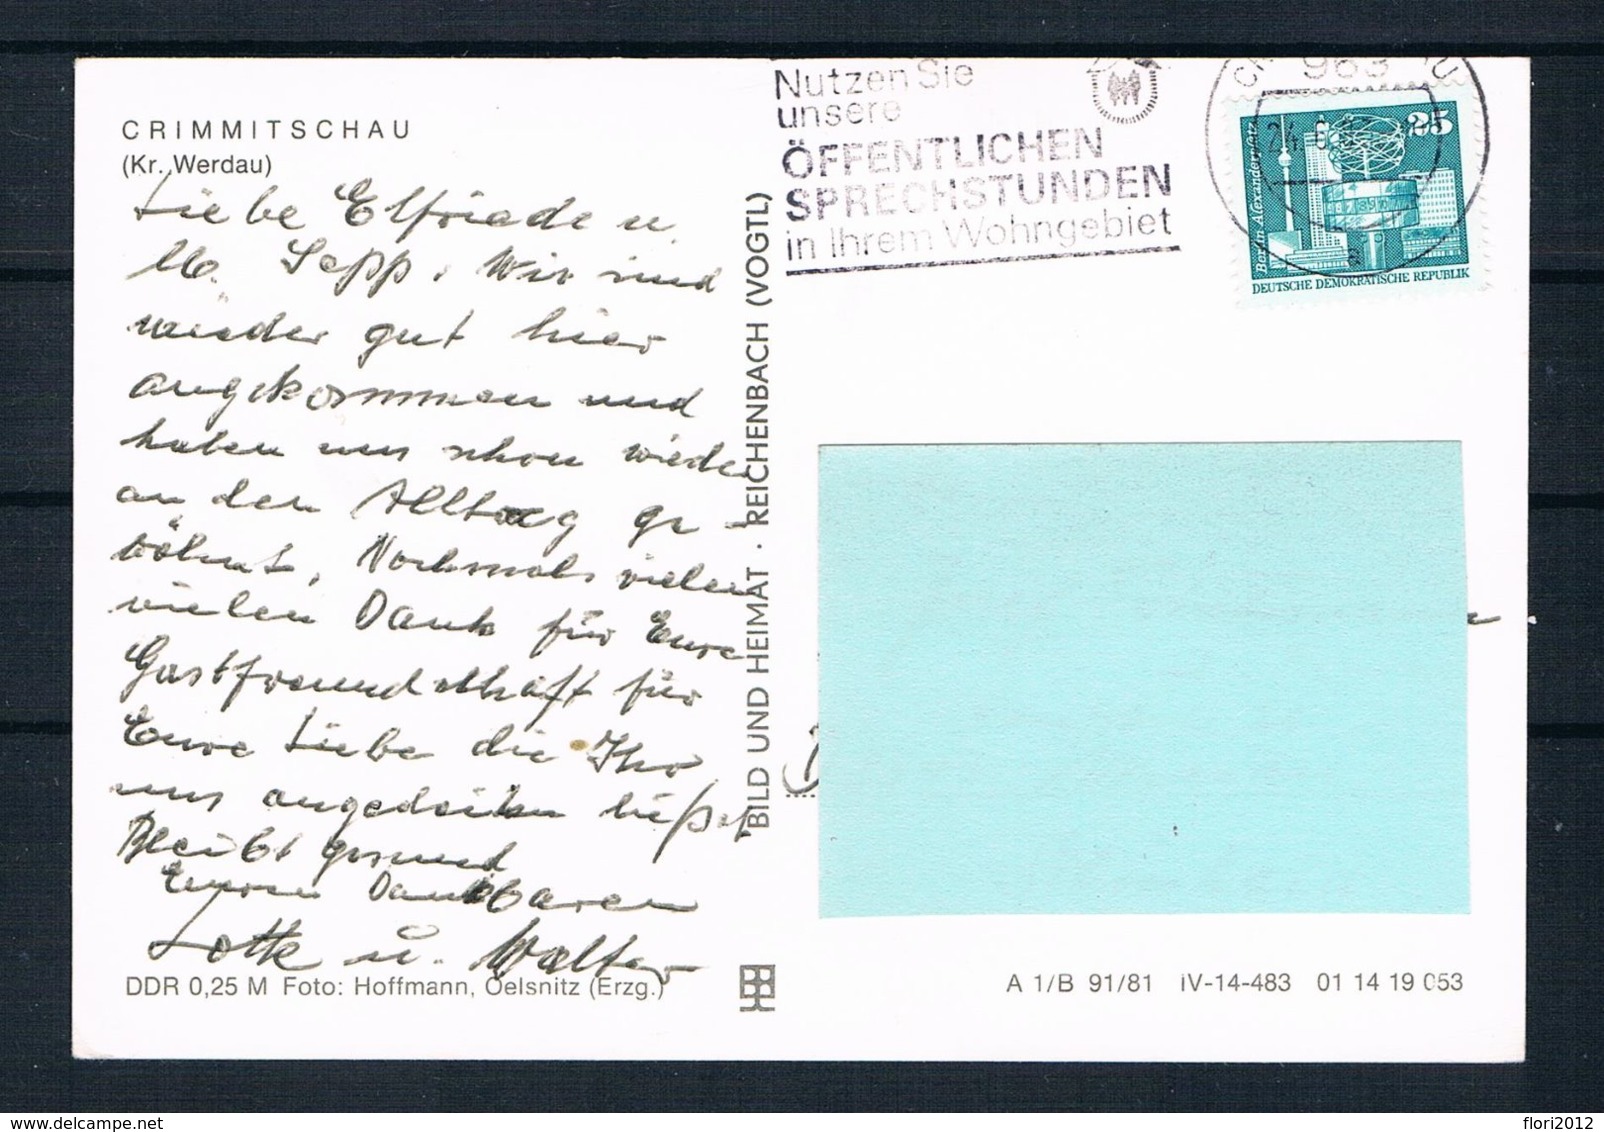 CRIMMITSCHAU
(Kr. Werdau)
Liebe Elfriede u.
lb. Sepp. Wir sind
wieder gut hier
angekommen und
haben uns schon wieder
an den Alltag ge-
wöhnt. Nochmals vielen
vielen Dank für Eure
Gastfreundschaft für
Eure Liebe die Ihr
uns angedeihen ließet
Bleibt gesund
Euren Dankbaren
Lotte u. Walter
DDR 0,25 M Foto: Hoffmann, Oelsnitz (Erzg.)
BILD UND HEIMAT · REICHENBACH (VOGTL)
Nutzen Sie
unsere
ÖFFENTLICHEN
SPRECHSTUNDEN
in Ihrem Wohngebiet
963
25
Berlin, Alexanderplatz
DEUTSCHE DEMOKRATISCHE REPUBLIK
A 1/B 91/81 IV-14-483 01 14 19 053
delcampe.net
flori2012